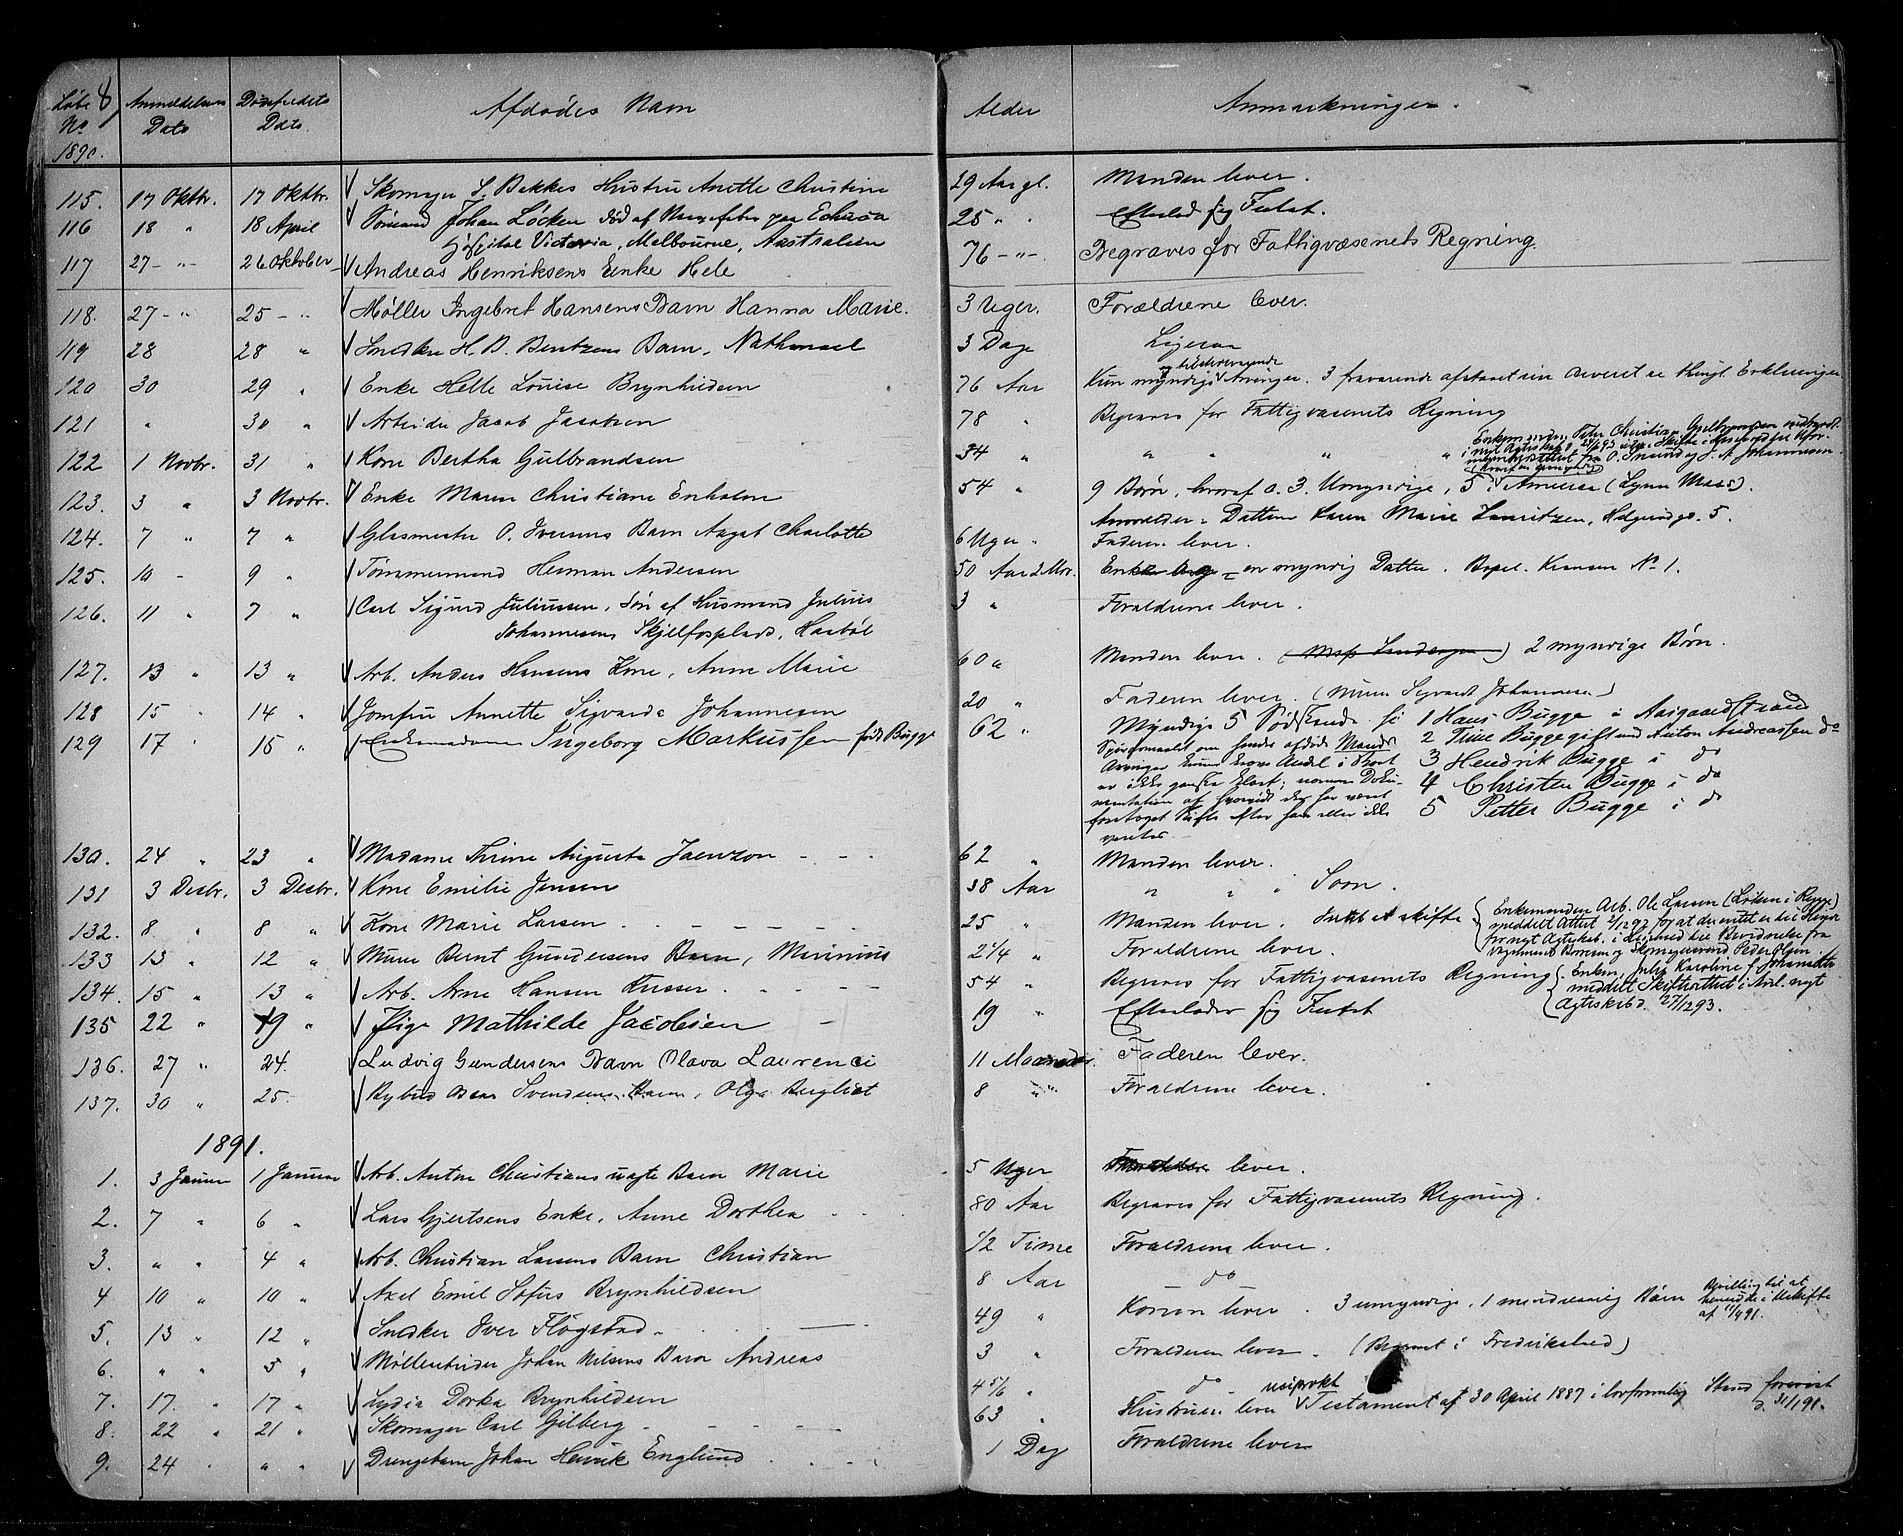 8
Løbe No 1890. Anmeldelsens Dato Dødsfaldets Dato. Afdødes Navn Alder Anmærkninger.
115. 17 Oktbr. 17 Oktbr. Skomager S. Bakkes Hustru Anette Christine 29 Aar gl. Manden lever.
116 18 " 18 April Sømand Johan Løcken død af paa Echuca 25 " . Efterlod sig Intet.
Hospital Victoria, Melbourne, Australien
117 27 - " - 26 Oktober Andreas Henriksens Enke Hele 76 - " - Begraves for Fattigvæsenets Regning.
118. 27 - " 25 - " Møller Ingebret Hansens Barn Hanna Marie. 3 Uger. Forældrene lever.
119 28 28 " Snedker H. B. Bentzens Barn, Nathanael 3 Dage Ligesaa
120 30 29 " Enke Helle Louise Brynhildsen 76 Aar Kun myndige og tilstedeværende Arvinger. 3 fraværende
121 " 30 " Arbeider Jacob Jacobsen 78 " Begraves for Fattigvæsenets Regning
122 1 Novbr. 31 " Kone Bertha Gulbrandsen 34 " " " " " Enkemanden Peter Christian Gulbrandsen
123. 3 " 3 Novbr. Enke Maren Christiane Eriksen 54 " 9 Børn, hvoraf o. 3. Umyndige, 5 i Amerika (Lynn Mass).
Anmelder: Datteren Karen Marie Lauritzen, 5.
124. 7 " 7 " Glasmester O. Iversens Barn Aagot Charlotte 6 Uger " Faderen lever.
125. 10 - 9 " Tømmermand Herman Andersen 50 Aar 2 Mdr. Enke og en myndig Datter. No 1.
126. 11 " 7 " Carl Sigurd Juliussen, Søn af Husmand Julius 3 " Forældrene lever.
Johannesens Skjelfossplads, Haabøl
127. 13 " 13 " Arb. Anders Hansens Kone, Anne Marie 60 " Manden lever. 2 myndige Børn.
128 15 " 14 " Jomfru Annette Sigvarda Johannesen 20 " Faderen lever. (Murer Sigvardt Johannesen)
129 17 " 15 " Enkemadam Ingeborg Markussen født Bugge 62 " Myndige 5 Sødskende
1 Hans Bugge i Aasgaardstrand
2 Trine Bugge gift med Anton Andreassen do
3 Hendrik Bugge i do
4 Christen Bugge i do
5 Petter Bugge i do
Spørsmaalet om hendes afdøde Mands
Arvinger kunne kræve Andel i Boet
er ikke ganske klart; nærmere Doku-
mentation af hvorvidt der har været
foretaget Skifte efter ham eller ikke
ventes.
130. 24 " 23 " Madame Thrine Augusta Jaenzon 62 " Manden lever.
131 3 Desbr. 3 Desbr. Kone Emilie Jensen 38 Aar " " " Søn.
132. 8 " 8 " Kone Marie Larsen 25 " Manden lever. Intet at skifte Enkemanden Arb. Ole Larsen
133 13 " 12 " Murer Bernt Gundersens Barn, Marinius 2 1/4 " Forældrene lever.
134. 15 " 13 " Arb. Arne Hansen Kusser 54 " Begraves for Fattigvæsenets Regning Enken, Karoline f. Johansdtr
meddelt Skifteattest i Anl. nyt
Ægteskab d. 27/12 93.
135 22 " 19 " Pige Mathilde Jacobsen 19 " Efterlader sig Intet
136. 27 " 24. Ludvig Gundersens Barn Olava Laurenci 11 Maaneder. Faderen lever.
137. 30 " 25. Svendsens Barn, Olga 8 " " Forældrene lever.
1891.
1. 3 Januar 1 Januar Arb. Anton Christians uægte Barn Marie 5 Uger lever.
2. 7 " 6 " Lars Gjertsens Enke, Anne Dorthea 80 Aar Begraves for Fattigvæsenets Regning.
3. " " 4 " Arb. Christian Larsens Barn Christian 1/2 Time Forældrene lever.
4 10 " 10 " Axel Emil Sofus Brynhildsen 8 Aar do
5. 13 " 12 " Snedker Iver Fløgstad 49 " Konen lever. 3 umyndige, 1 mindreaarig Børn Bevilling til at hensidde i Uskifte af 11/4 91.
6. " " 5 " Møllearbeider Johan Nilsens Barn Andreas 3 " Forældrene lever. (Begravet i Fredrikstad)
7. 17. " 17 " Lydia Dorka Brynhildsen 4 5/6 " do
8. 22 " 21 " Skomager Carl Gilberg 63 " Hustruen lever resiprokt Testament af 30 April 1887 i lovformelig Stand forevist d. 31/1 91.
9. 24 " " " Drengebarn Johan Henrik Englund 1 Dag Forældrene lever